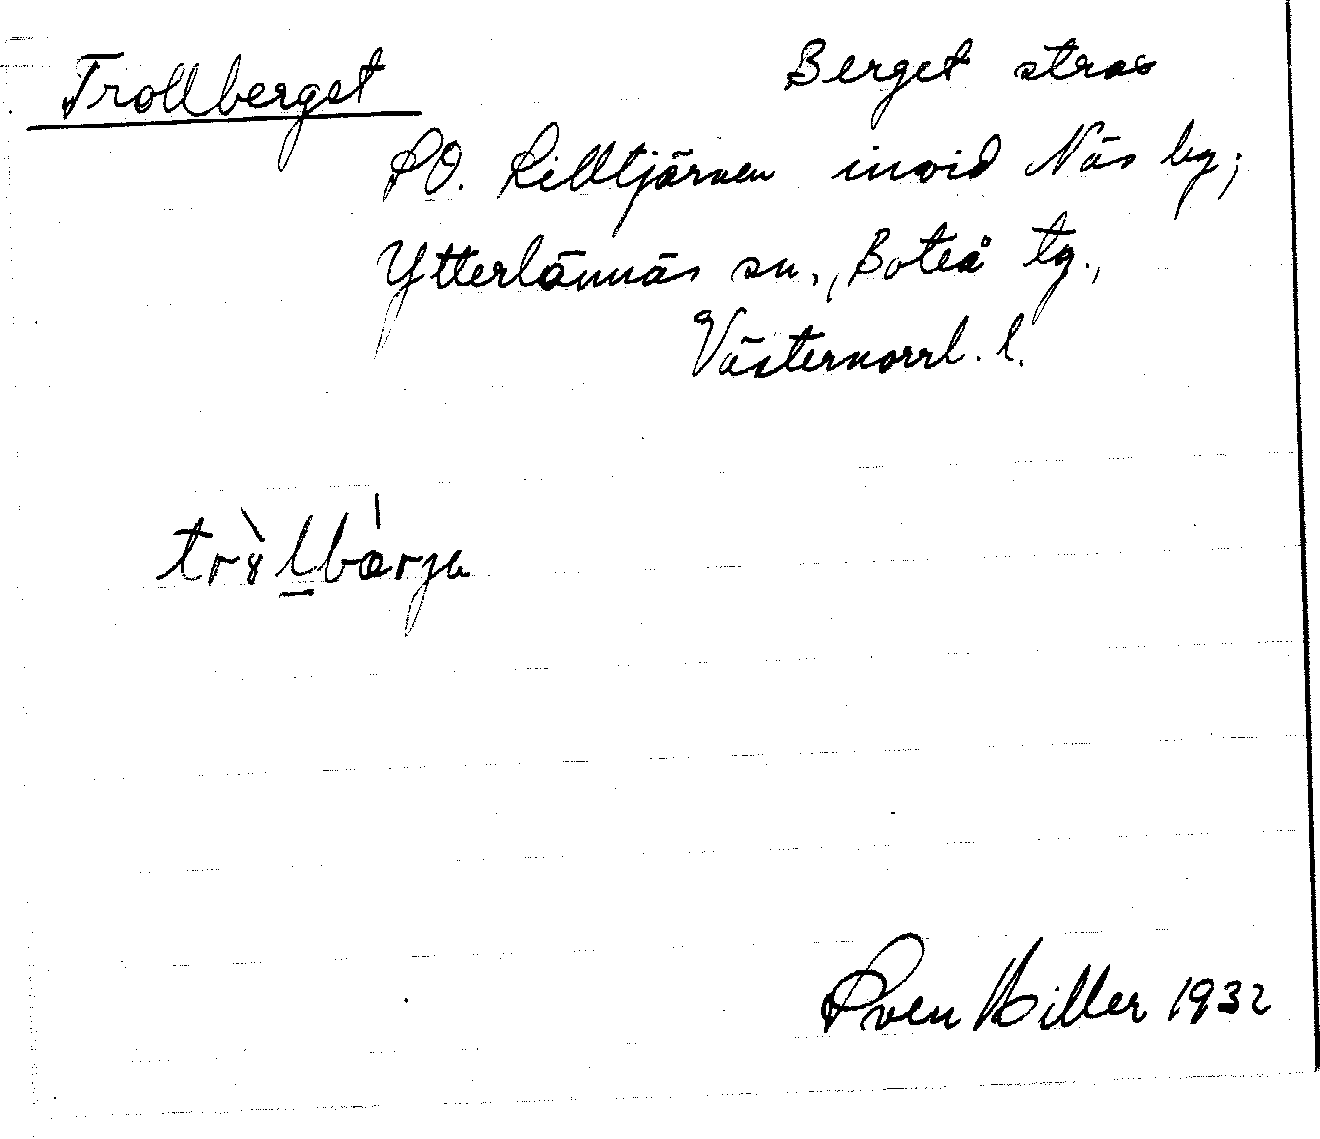 Trollberget
Berget strax
SO. Lilltjärnen invid Näs by;
Ytterlännäs sn., Boteå tg.,
Västernorrl. l.
Sven Hiller 1932